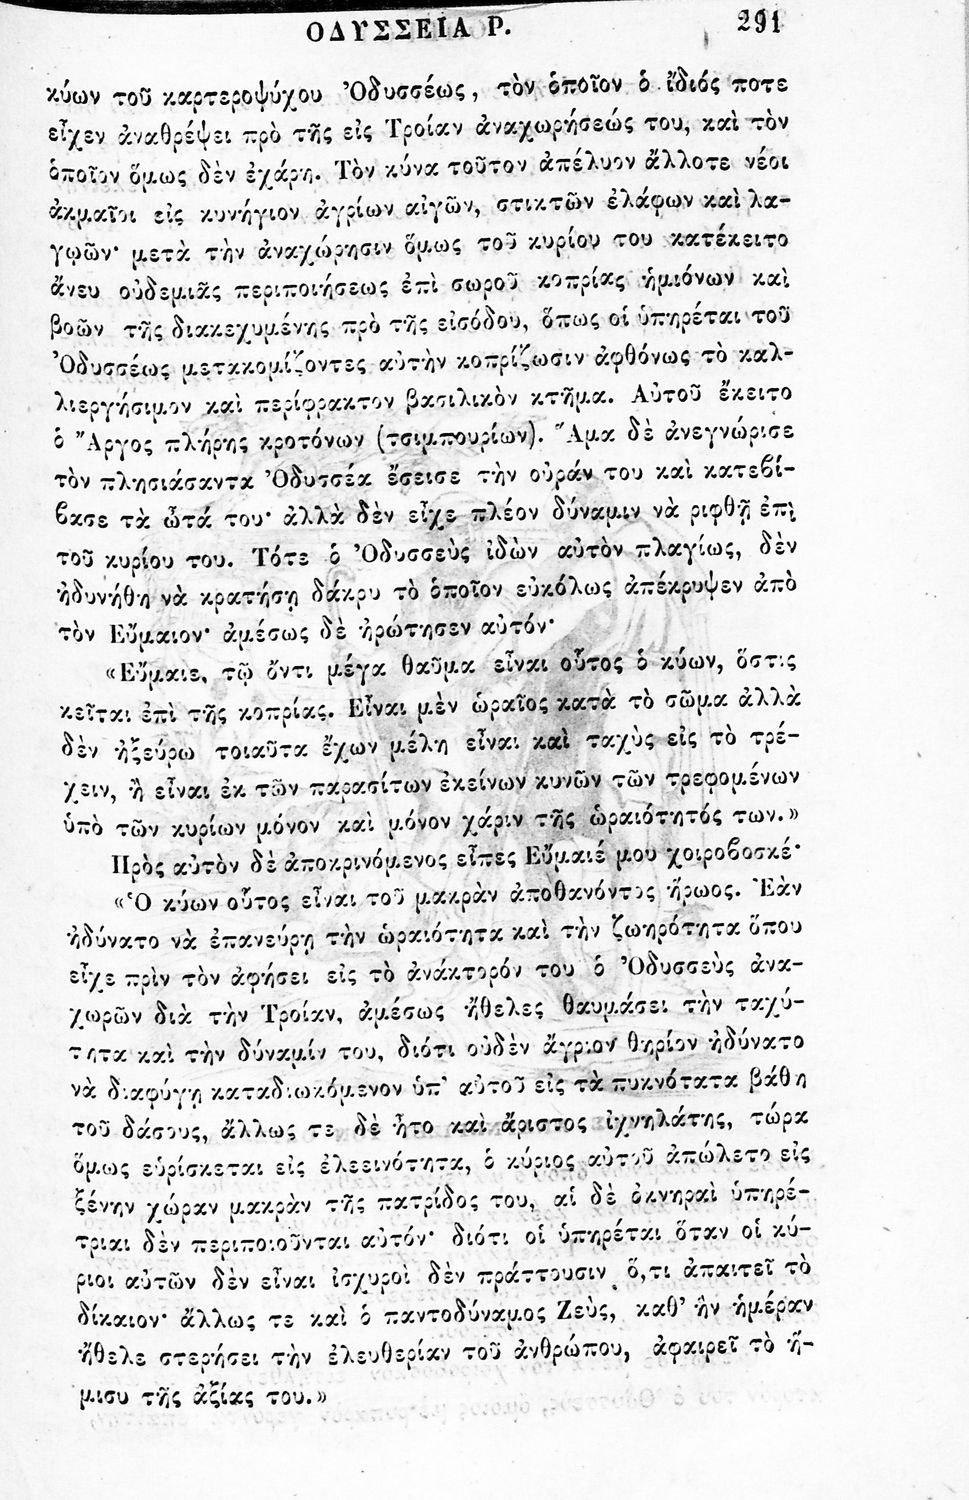 ΟΔΥΣΣΕΙΑ Ρ. 291
κύων τοῦ καρτεροψύχου Ὀδυσσέως, τὸν ὁποῖον ὁ ἴδιός ποτε
εἶχεν ἀναθρέψει πρὸ τῆς εἰς Τροίαν ἀναχωρήσεώς του, καὶ τὸν
ὁποῖον ὅμως δὲν ἐχάρη. Τὸν κύνα τοῦτον ἀπέλυον ἄλλοτε νέοι
ἀκμαῖοι εἰς κυνήγιον ἀγρίων αἰγῶν, στικτῶν ἐλάφων καὶ λα-
γῳῶν· μετὰ τὴν ἀναχώρησιν ὅμως τοῦ κυρίου του κατέκειτο
ἄνευ οὐδεμιᾶς περιποιήσεως ἐπὶ σωροῦ κοπρίας ἡμιόνων καὶ
βοῶν τῆς διακεχυμένης πρὸ τῆς εἰσόδου, ὅπως οἱ ὑπηρέται τοῦ
Ὀδυσσέως μετακομίζοντες αὐτὴν κοπρίζωσιν ἀφθόνως τὸ καλ-
λιεργήσιμον καὶ περίφρακτον βασιλικὸν κτῆμα. Αὐτοῦ ἔκειτο
ὁ Ἄργος πλήρης κροτόνων (τσιμπουρίων). Ἅμα δὲ ἀνεγνώρισε
τὸν πλησιάσαντα Ὀδυσσέα ἔσεισε τὴν οὐράν του καὶ κατεϐί-
ϐασε τὰ ὦτά του· ἀλλὰ δὲν εἶχε πλέον δύναμιν νὰ ριφθῇ ἐπὶ
τοῦ κυρίου του. Τότε ὁ Ὀδυσσεὺς ἰδὼν αὐτὸν πλαγίως, δὲν
ἠδυνήθη νὰ κρατήσῃ δάκρυ τὸ ὁποῖον εὐκόλως ἀπέκρυψεν ἀπὸ
τὸν Εὔμαιον· ἀμέσως δὲ ἠρώτησεν αὐτόν·
«Εὔμαιε, τῷ ὄντι μέγα θαῦμα εἶναι οὗτος ὁ κύων, ὅστις
κεῖται ἐπὶ τῆς κοπρίας. Εἶναι μὲν ὡραῖος κατὰ τὸ σῶμα ἀλλὰ
δὲν ἠξεύρω τοιαῦτα ἔχων μέλη εἶναι καὶ ταχὺς εἰς τὸ τρέ-
χειν, ἢ εἶναι ἐκ τῶν παρασίτων ἐκείνων κυνῶν τῶν τρεφομένων
ὑπὸ τῶν κυρίων μόνον καὶ μόνον χάριν τῆς ὡραιότητός των.»
Πρὸς αὐτὸν δὲ ἀποκρινόμενος εἶπες Εὔμαιέ μου χοιροϐοσκέ·
«Ὁ κύων οὗτος εἶναι τοῦ μακρὰν ἀποθανόντος ἥρωος. Ἐὰν
ἠδύνατο νὰ ἐπανεύρῃ τὴν ὡραιότητα καὶ τὴν ζωηρότητα ὅπου
εἶχε πρὶν τὸν ἀφήσει εἰς τὸ ἀνάκτορόν του ὁ Ὀδυσσεὺς ἀνα-
χωρῶν διὰ τὴν Τροίαν, ἀμέσως ἤθελες θαυμάσει τὴν ταχύ-
τητα καὶ τὴν δύναμίν του, διότι οὐδὲν ἄγριον θηρίον ἠδύνατο
νὰ διαφύγῃ καταδιωκόμενον ὑπ' αὐτοῦ εἰς τὰ πυκνότατα βάθη
τοῦ δάσους, ἄλλως τε δὲ ἦτο καὶ ἄριστος ἰχνηλάτης, τώρα
ὅμως εὑρίσκεται εἰς ἐλεεινότητα, ὁ κύριος αὐτοῦ ἀπώλετο εἰς
ξένην χώραν μακρὰν τῆς πατρίδος του, αἱ δὲ ὀκνηραὶ ὑπηρέ-
τριαι δὲν περιποιοῦνται αὐτόν· διότι οἱ ὑπηρέται ὅταν οἱ κύ-
ριοι αὐτῶν δὲν εἶναι ἰσχυροὶ δὲν πράττουσιν ὅ,τι ἀπαιτεῖ τὸ
δίκαιον· ἄλλως τε καὶ ὁ παντοδύναμος Ζεὺς, καθ' ἣν ἡμέραν
ἤθελε στερήσει τὴν ἐλευθερίαν τοῦ ἀνθρώπου, ἀφαιρεῖ τὸ ἥ-
μισυ τῆς ἀξίας του.»